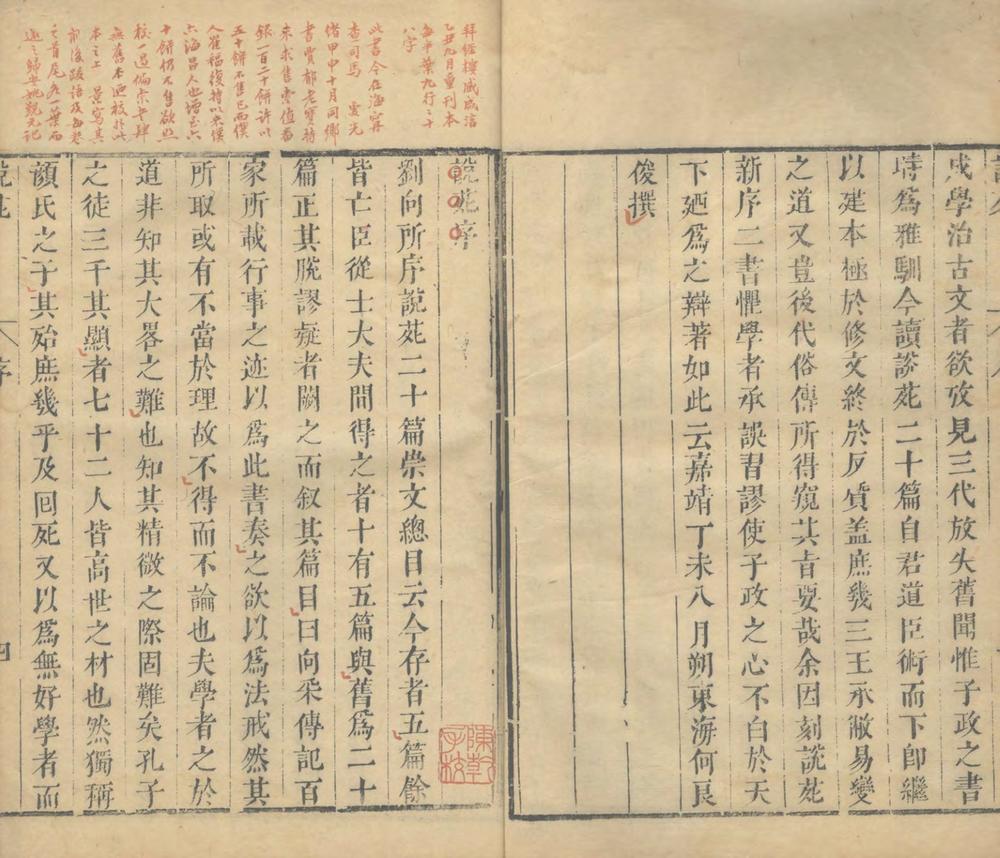 成學治古文者欲攷見三代放失舊聞惟子政之書
時爲雅馴今讀說苑二十篇自君道臣術而下卽繼
以建本極於修文終於反質盖庶幾三王承敝易變
之道又豈後代俗傳所得窺其旨要哉余因刻說苑
新序二書懼學者承誤習謬使子政之心不白於天
下廼爲之辯著如此云嘉靖丁未八月朔東海何良
俊撰
說苑序
劉向所序說苑二十篇崇文總目云今存者五篇餘
皆亡臣從士大夫間得之者十有五篇與舊爲二十
篇正其脫謬疑者闕之而叙其篇目曰向采傳記百
家所載行事之迹以爲此書奏之欲以爲法戒然其
所取或有不當於理故不得而不論也夫學者之於
道非知其大畧之難也知其精微之際固難矣孔子
之徒三千其顯者七十二人皆高世之材也然獨稱
顔氏之子其殆庶幾乎及回死又以爲無好學者而
說苑
序
四
拜經樓咸咸淳
乙丑九月重刊本
每半葉九行二十
八字
此書今在海甯
查司馬 光
緒甲申十月同鄉
書賈郁老寶持
來求售索值番
銀一百二十餅許以
五十餅不售已而僕
人崔福復持以來僕
六海昌人也增至六
十餅仍不售欲照
校一過徧索書肆
無舊本迺校於此
本之上 景寫其
前後跋語及每卷
之首尾各一葉而
還之歸安姚覲元記